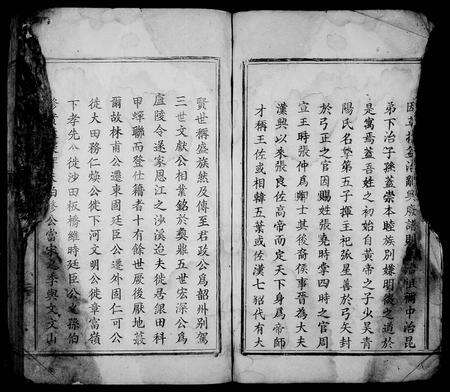 弟下治子孫蓋崇本睦族別嫌明微之道於
是寓焉蓋吾姓之初始自黃帝之子少昊青
陽氏名摯第五子揮王祀弧星善於弓矢封
於弓正之官因賜姓張堯時掌四時之官周
宣王時張仲爲卿士其後裔侯事晉為大夫
漢興以來張良佐高帝而定天下身爲帝師
才稱王佐或相韓五葉或佐漢七貂代有大
賢世稱盛族然及傳至君政公爲韶州別駕
三世文獻公相業銘於奠鼎五世宏深公爲
廬陵令遂家恩江之沙溪迨夫徙居銀田科
甲蟬聯而登仕籍者十有餘世厥後厭地蕞
爾故林甫公遷東園廷臣公遷外固仁可公
徙大田務仁煥公徙下河文朔公徙章富嶺
下孝先公徙沙田板橋維時廷臣公孫伯
公當宋之季與文文山